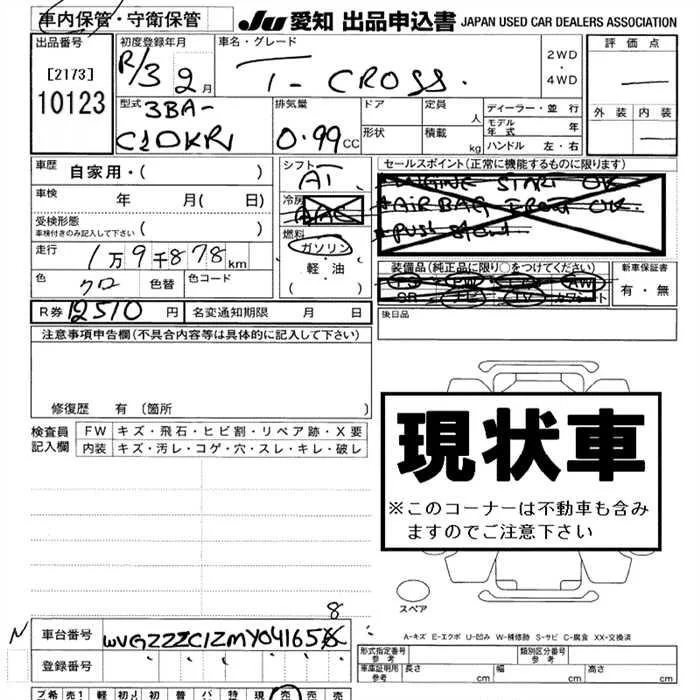 車内保管・守衛保管
JU 愛知 出品申込書 JAPAN USED CAR DEALERS ASSOCIATION
出品番号
[2173]
10123
初度登録年月
R/3 2月
車名・グレード
T-CROSS.
2WD
・
4WD
評価点
外装 内装
型式 3BA-
C1DKR
排気量
0.99cc
ドア
形状
定員 人
積載 kg
ディーラー・並行
モデル年式 年
ハンドル 左・右
車歴 自家用・( )
車検 年 月( 日)
受検形態
車検付きのみ記入して下さい ( )
走行 1万9千878km
色 クロ 色替 色コード
シフト AT
冷房 AAC
燃料
ガソリン
軽・油
( )
セールスポイント(正常に機能するものに限ります)
ENGINE START OK.
AIRBAG FRONT OK.
PUSH Start
装備品(純正品に限り○をつけてください)
PS PW AW
SR ナビ TV カワシート
新車保証書
有・無
R券 12510円 名変通知期限 月 日
後日品
注意事項申告欄(不具合内容等は具体的に記入して下さい)
修復歴 有〔箇所 〕
検査員
記入欄
FW キズ・飛石・ヒビ割・リペア跡・X要
内装 キズ・汚レ・コゲ・穴・スレ・キレ・破レ
現状車
※このコーナーは不動車も含み
ますのでご注意下さい
スペア
8
N 車台番号 WVGZZZC1ZMY041658
登録番号
A-キズ E-エクボ U-凹み W-補修跡 S-サビ C-腐食 XX-交換済
形式指定番号
参考
類別区分番号
参考
車庫証明用
参考
長さ cm 幅 cm 高さ cm
プ希売! 軽 初 初 普 パ 特 現 売 売